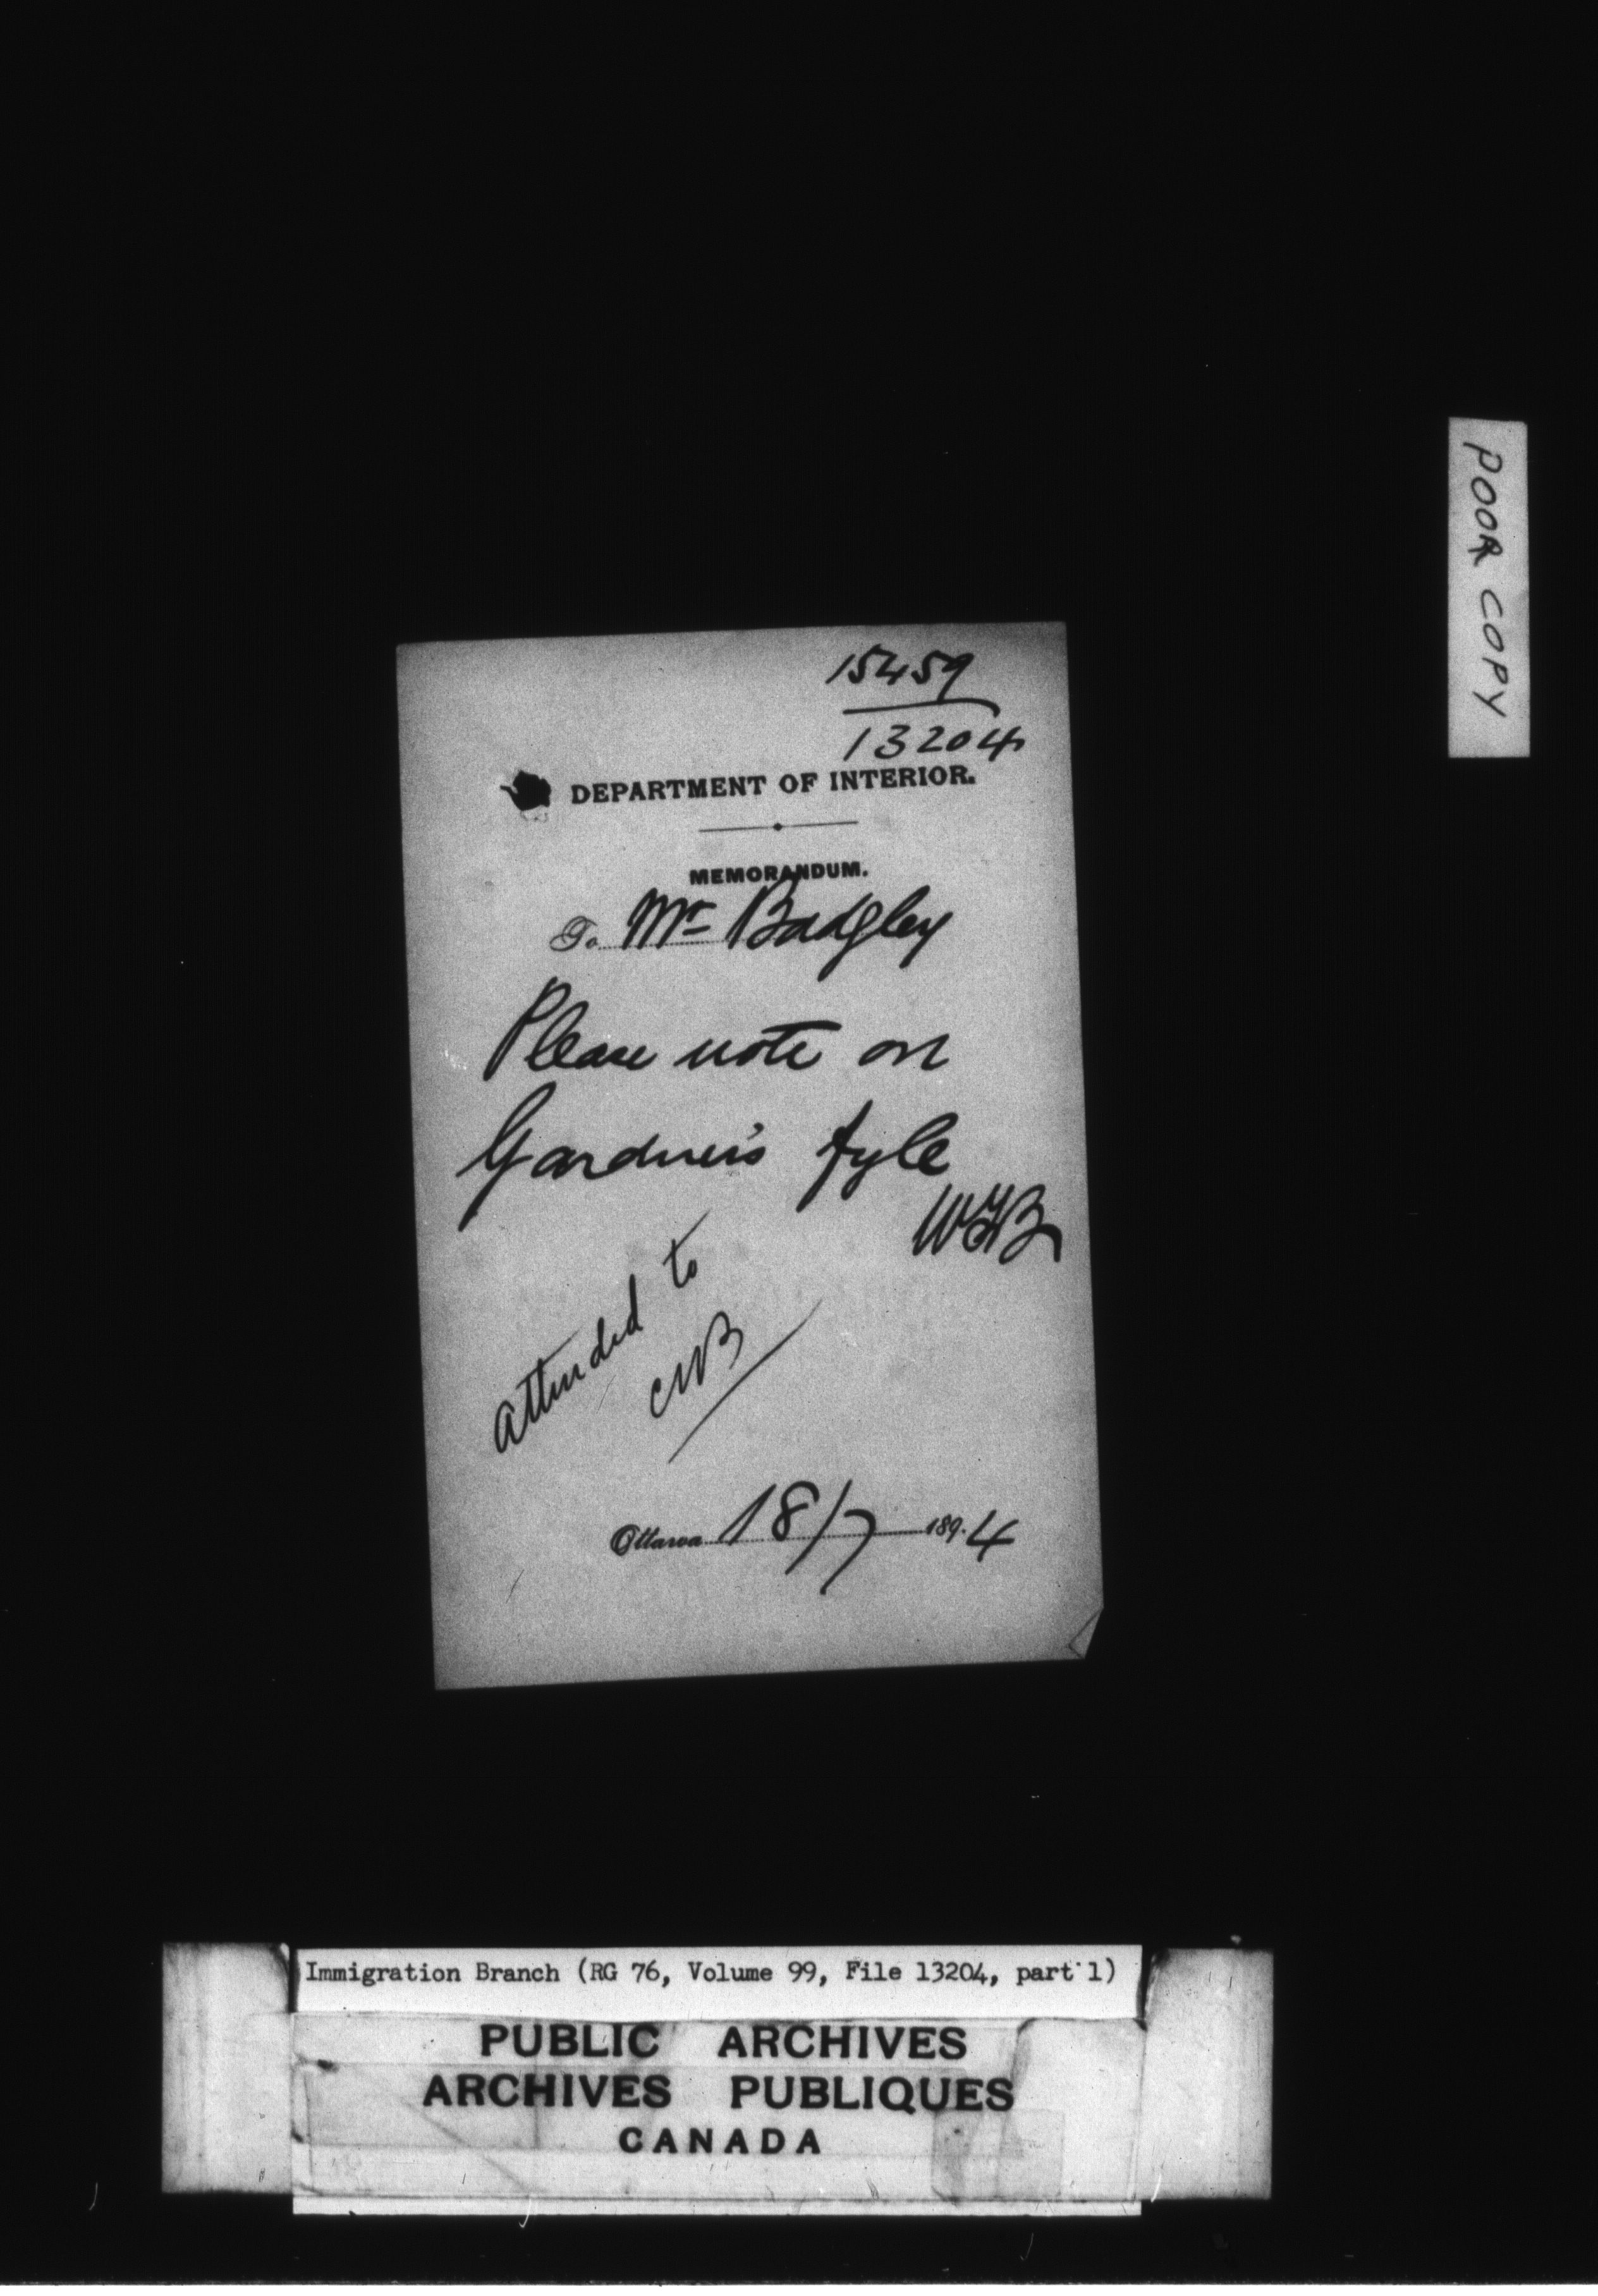 15459
13204
DEPARTMENT OF INTERIOR.
MEMORANDUM.
To Mr Badgley
Please note on
Gardner's fyle
WFB
attended to
CWB
Ottawa 18/7 1894
POOR COPY
Immigration Branch (RG 76, Volume 99, File 13204, part 1)
PUBLIC ARCHIVES
ARCHIVES PUBLIQUES
CANADA